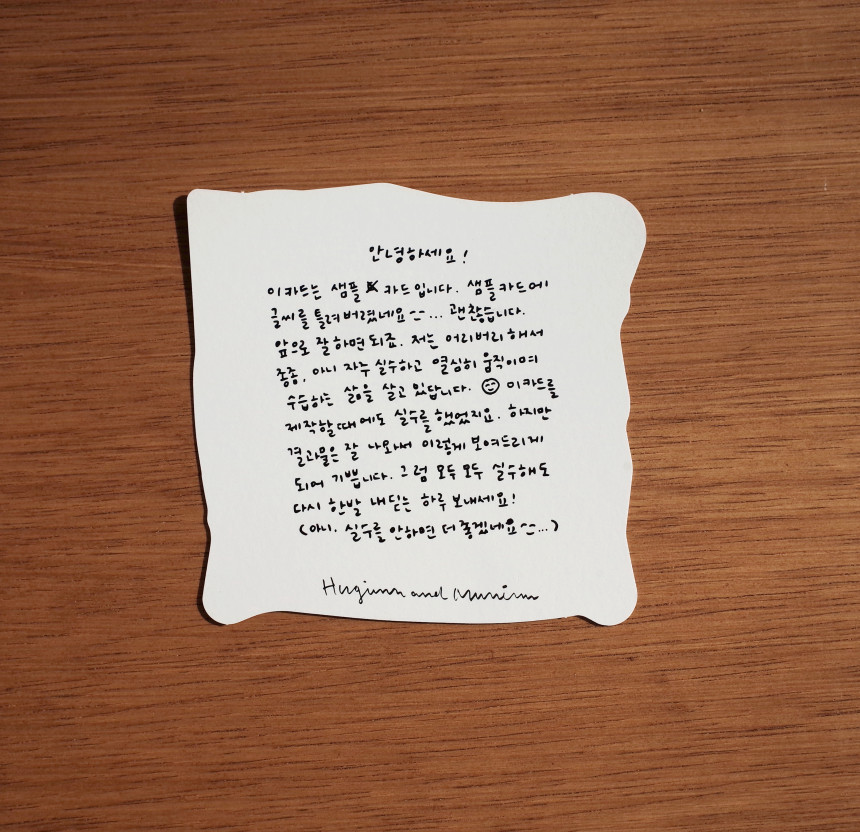 안녕하세요!
이 카드는 샘플 카드입니다. 샘플카드에
글씨를 틀려버렸네요^^... 괜찮습니다.
앞으로 잘하면 되죠. 저는 어리버리해서
종종, 아니 자주 실수하고 열심히 움직이며
수습하는 삶을 살고 있답니다. 이 카드를
제작할 때에도 실수를 했었지요. 하지만
결과물은 잘 나와서 이렇게 보여드리게
되어 기쁩니다. 그럼 모두모두 실수해도
다시 한발 내딛는 하루 보내세요!
(아니, 실수를 안하면 더 좋겠네요^^...)
Huginn and Muninn